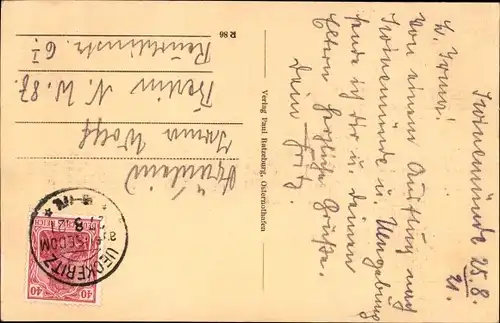 Swinemünde 25.8.
21.
L. Irma!
Von einem Ausflug nach
Swinemünde u. Umgebung
sende ich dir u. deinen
Eltern herzliche Grüße.
Dein Fritz.
Verlag Paul Ratzeburg, Osternothafen
R 86
Fräulein
Irma Wolff
Berlin N. W. 87.
6 I
UECKERITZ
USEDOM
40 40